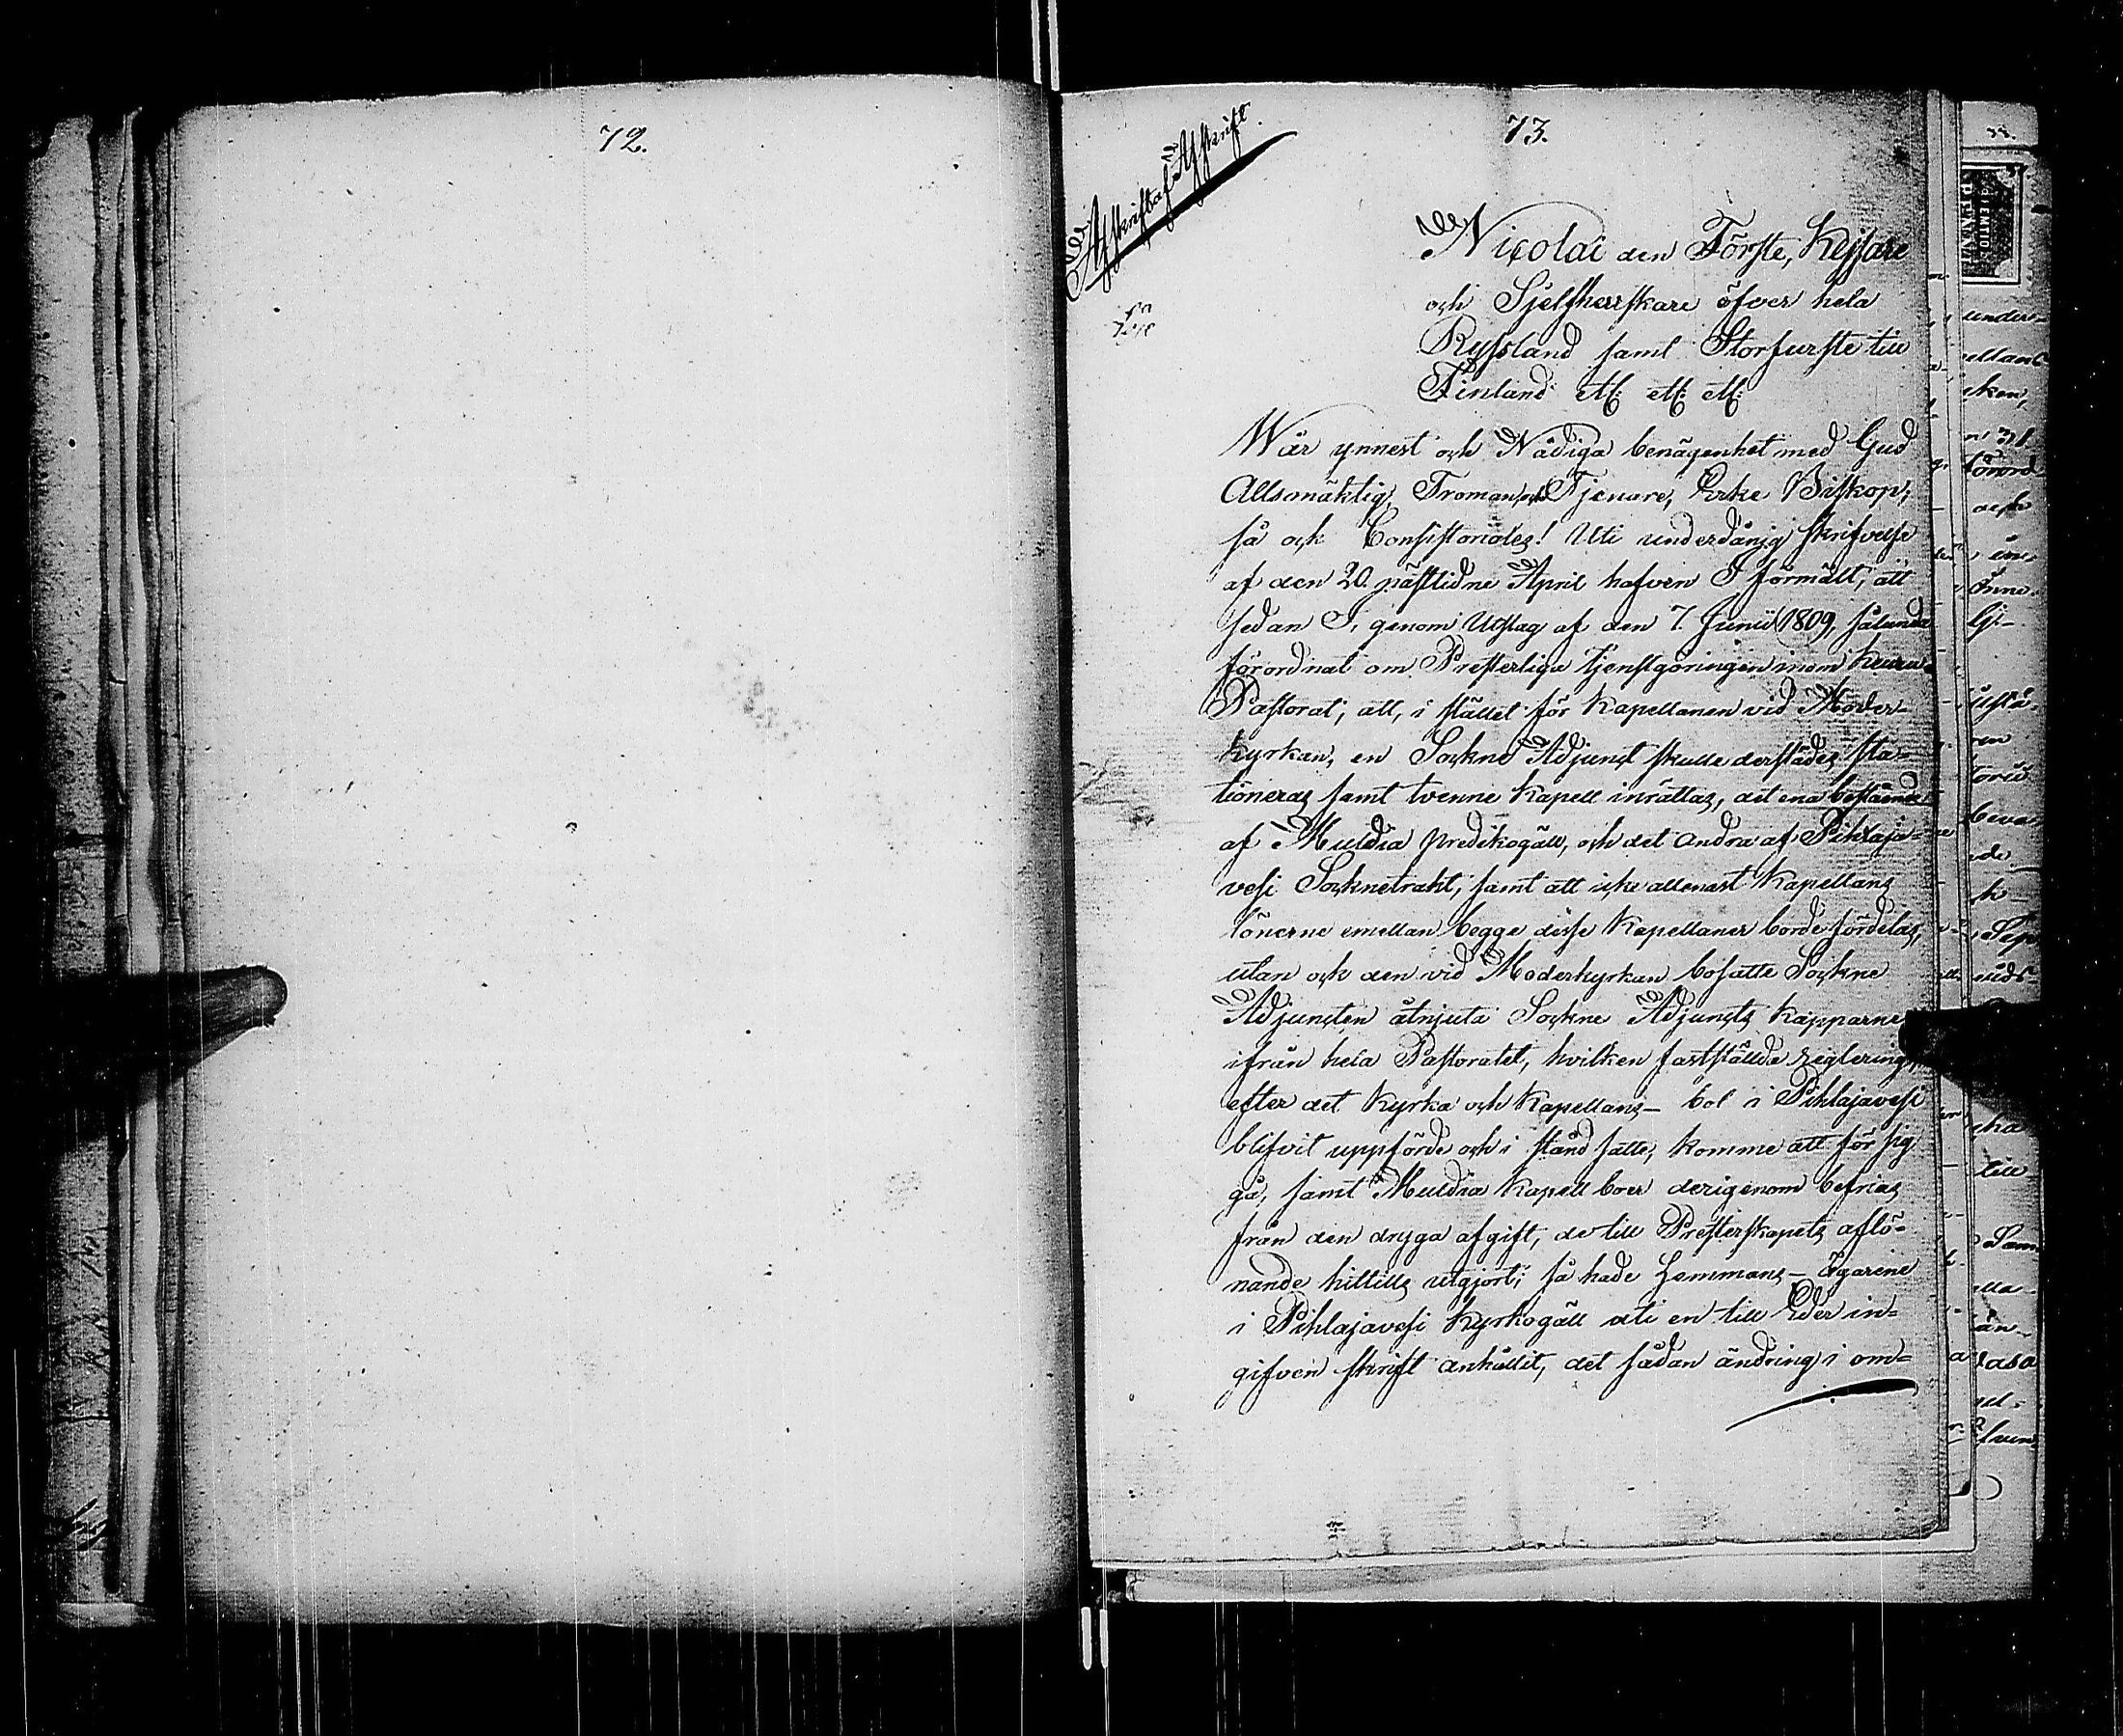 72.
73.
Afskrift af Afskrift.
Nicolai den Förste, Kejsare
och Sjelfherrskare öfver hela
Ryssland samt Storfurste till
Finland etc: etc: etc:
Wår ynnest och Nådiga benägenhet med Gud
Allsmäktig, Troman och Tjenare, Erke Biskop,
så ock Consistoriales! Uti underdånig skrifvelse
af den 20. nästlidne April hafven I förmält, att
sedan I, genom Utslag af den 7. Junii 1809, sålunda
förordnat om Presterliga tjenstgöringen inom Keuru
Pastorat, att, i stället för Kapellanen vid Moder-
kyrkan, en Sockne Adjunct skulle derstädes sta-
tioneras samt tvenne Kapell inrättas, det ena bestående
af Muldia predikogäll, och det andra af Pihlaja-
vesi Socknetrakt, samt att icke allenast Kapellans
lönerne emellan begge desse Kapellaner borde fördelas,
utan ock den vid Moderkyrkan bosatte Sockne
Adjuncten åtnjuta Sockne Adjuncts kapparne
ifrån hela Pastoratet, hvilken fastställda reglering,
efter det Kyrka och Kapellans- bol i Pihlajavesi
blifvit uppförde och i stånd satte, komme att för sig
gå, samt Muldia Kapell boer derigenom befrias
från den dryga afgift, de till Presterskapets aflö-
nande hittills utgjort; så hade Hemmans- Ägarene
i Pihlajavesi Kyrkogäll uti en till Eder in-
gifven skrift anhållit, det sådan ändring i om-